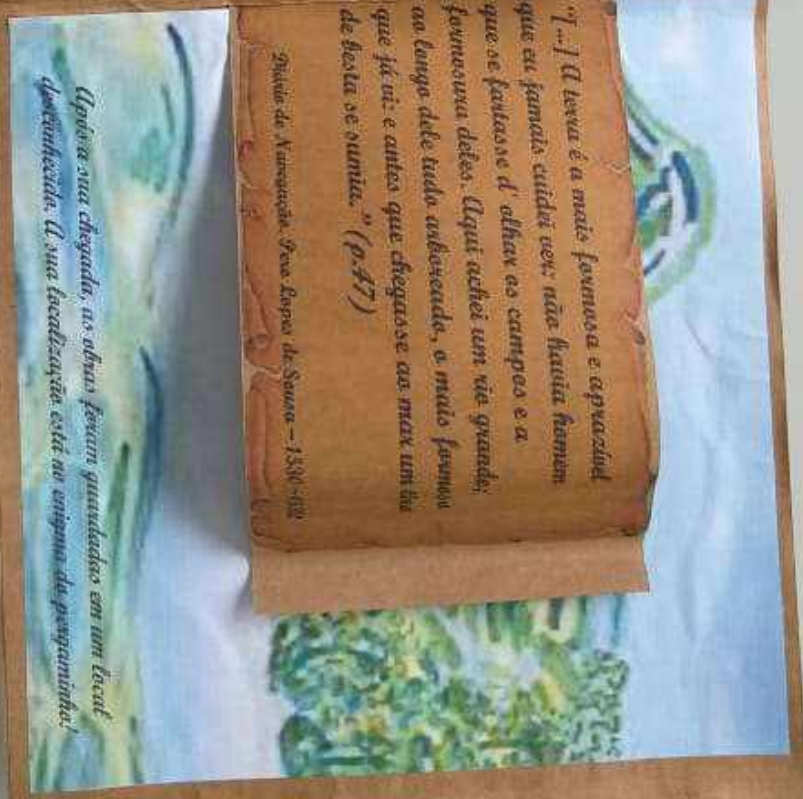 "[...] A terra é a mais formosa e aprazível
que eu jamais cuidei ver: não havia homem
que se fartasse d' olhar os campos e a
formosura deles. Aqui achei um rio grande;
ao longo dele tudo arboreado, o mais formoso
que já vi: e antes que chegasse ao mar um tiro
de besta se sumia." (p.47)
Diário de Navegação Pero Lopes de Sousa – 1530-
Após a sua chegada, as obras foram guardadas em um local
desconhecido. A sua localização está no enigma do pergaminho!